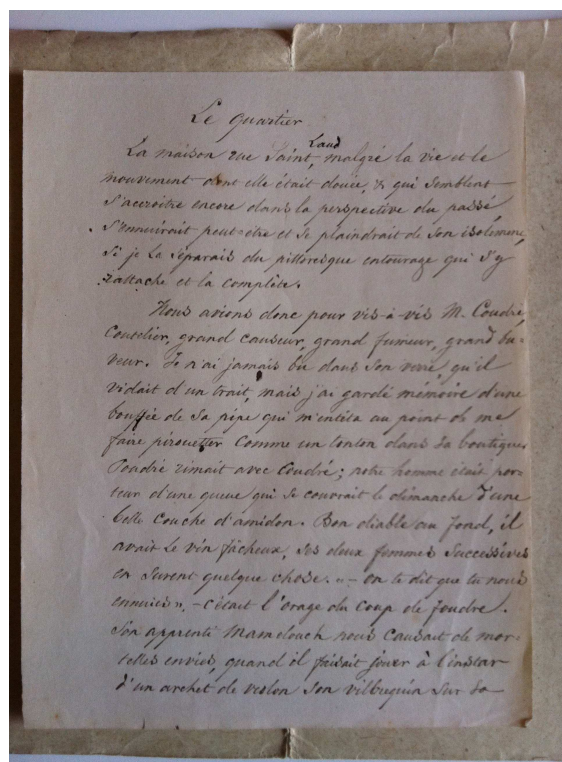 Le quartier
Laud
La maison rue Saint, malgré la vie et le
mouvement dont elle était douée, & qui semblent
s'accroître encore dans la perspective du passé,
s'ennuirait peut-être et se plaindrait de son isolement,
si je la séparais du pittoresque entourage qui s'y
rattache et la complète.
Nous avions donc pour vis-à-vis M. Coudré,
coutelier, grand causeur, grand fumeur, grand bu-
veur. Je n'ai jamais bu dans son verre, qu'il
vidait d'un trait, mais j'ai gardé mémoire d'une
bouffée de sa pipe qui m'entêta au point de me
faire pirouetter comme un tonton dans sa boutique.
Poudré rimait avec Coudré; notre homme était por-
teur d'une queue qui se couvrait le dimanche d'une
belle couche d'amidon. Bon diable au fond, il
avait le vin fâcheux, ses deux femmes successives
en surent quelque chose. "- on te dit que tu nous
ennuies", - c'était l'orage du coup de foudre.
Son apprenti Mamelouch nous causait de mor-
telles envies, quand il faisait jouer à l'instar
d'un archet de violon son vilbrequin sur sa